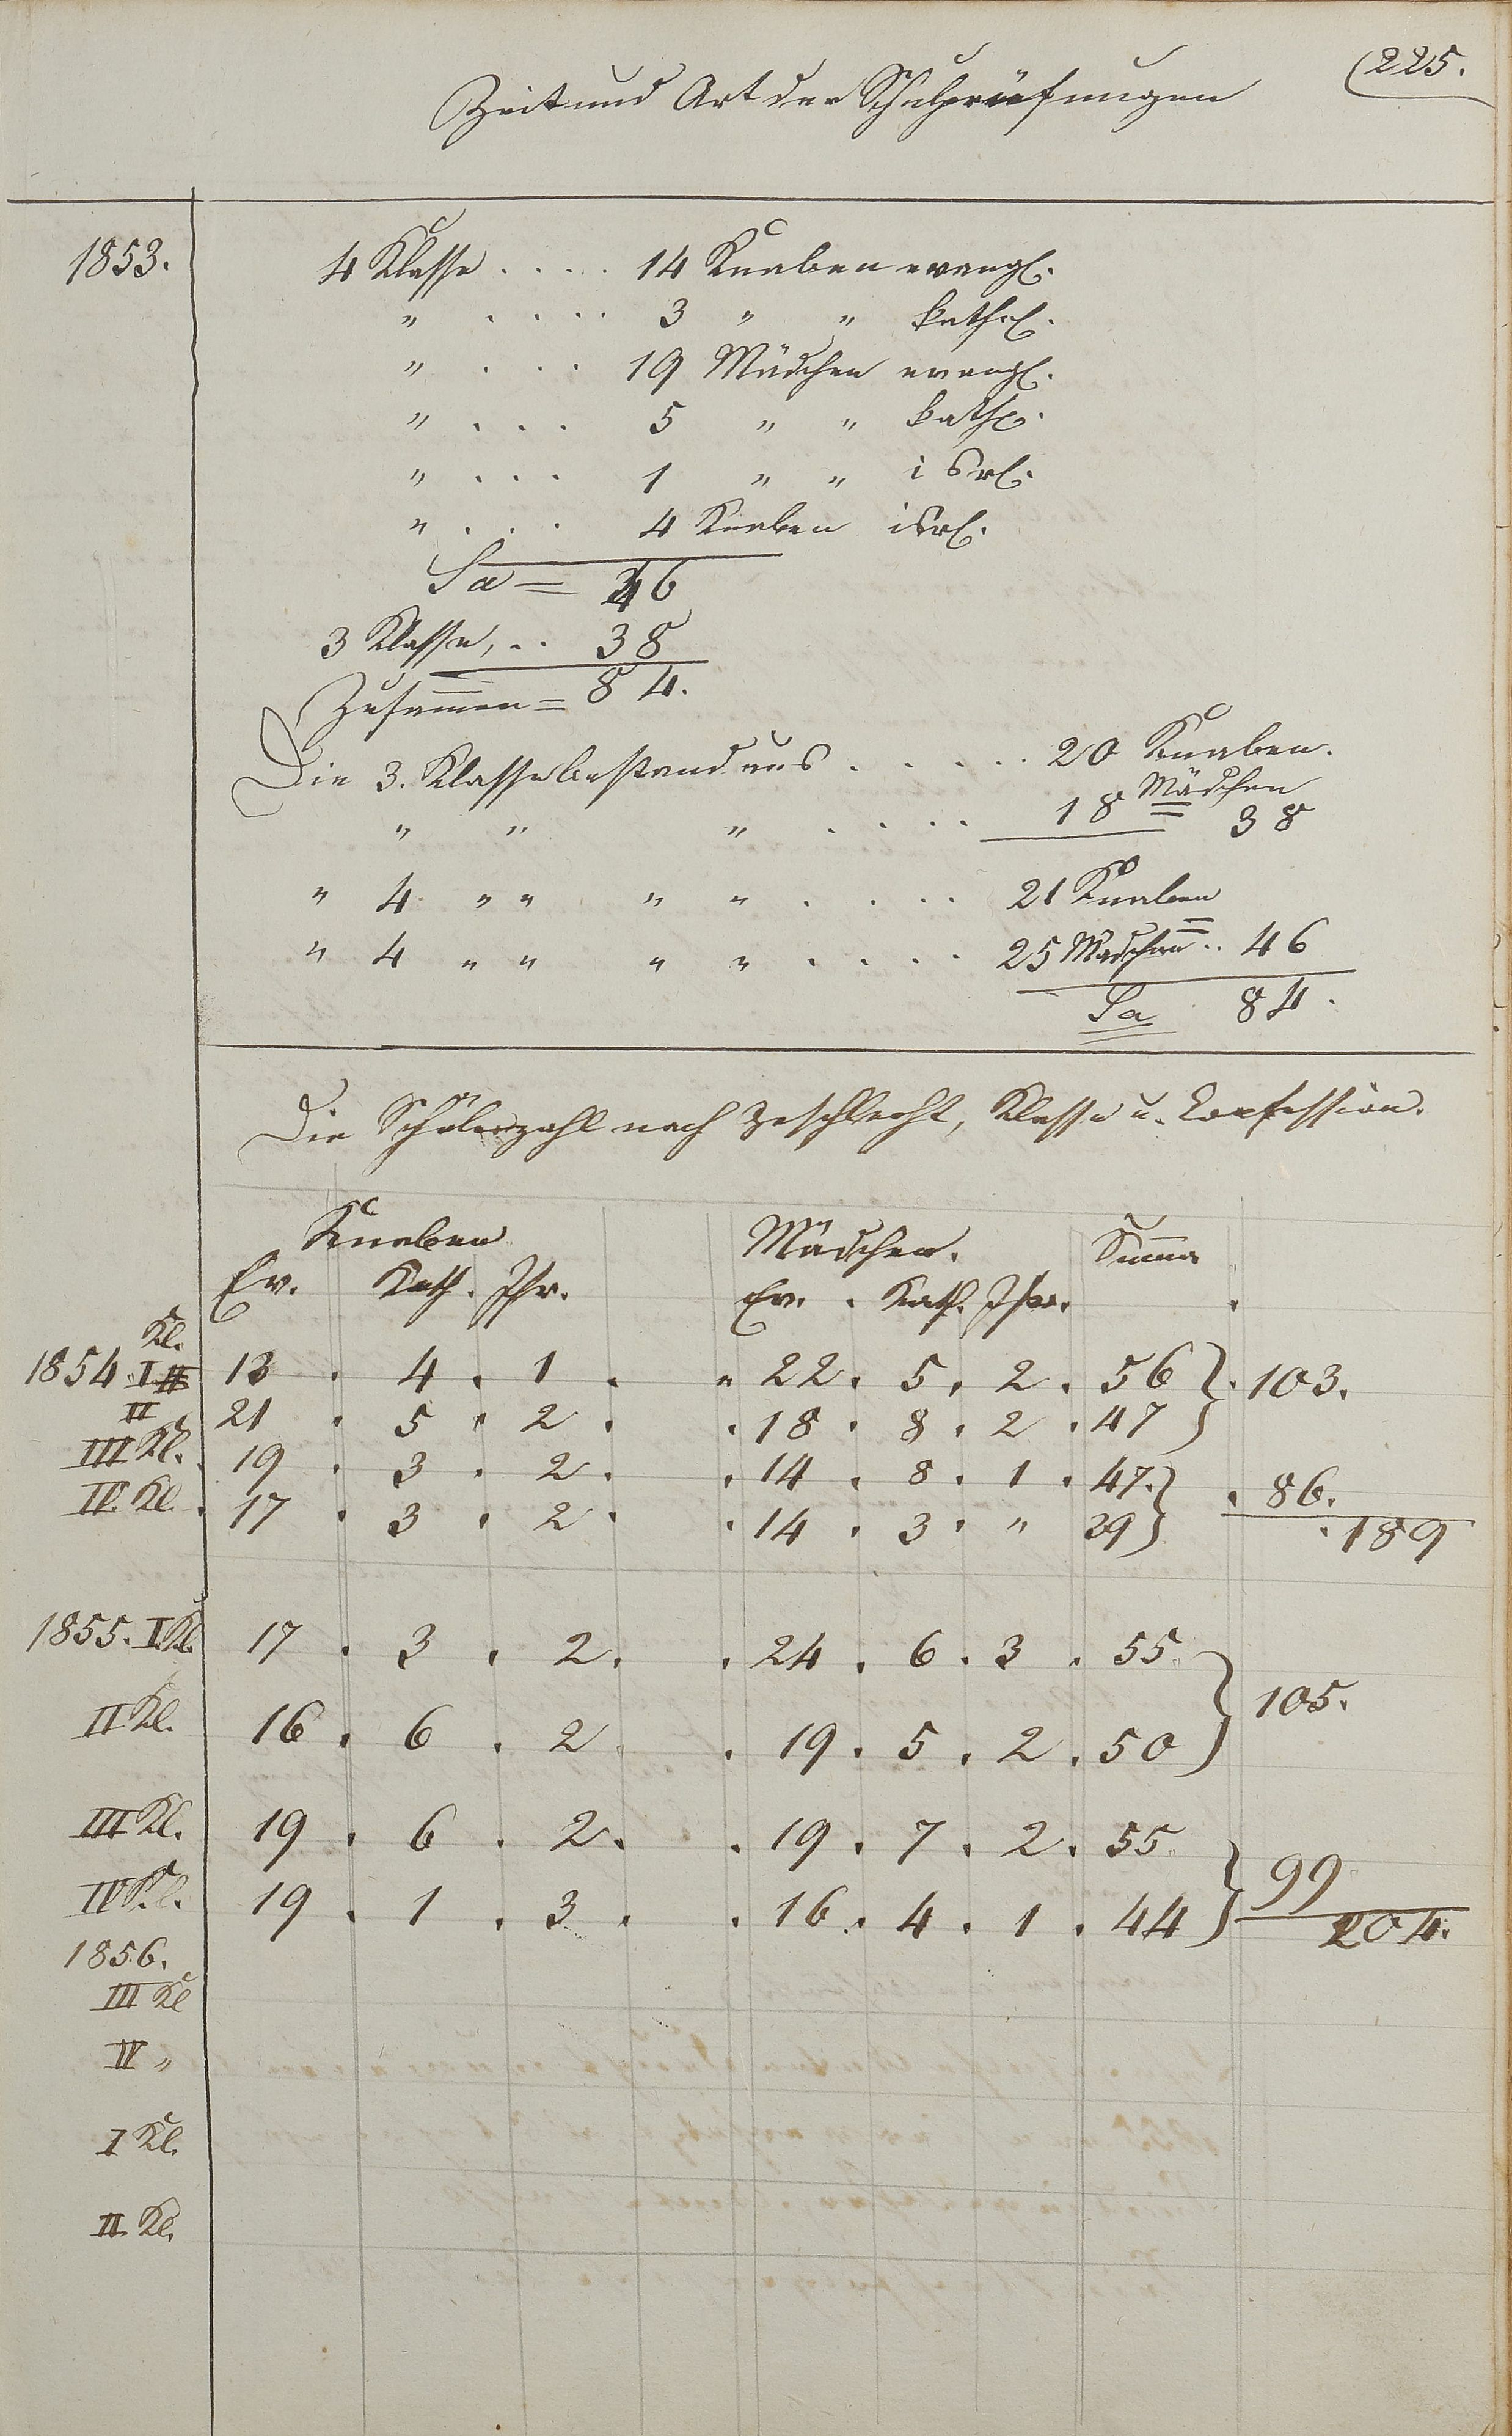 225.
Zeit und Art der Schulprüfungen
1853. 4 Klasse . . . . 14 Knaben evangl.
" . . . . 3 " " kathol.
" . . . 19 Mädchen evangl.
" . . . 5 " " kathl.
" . . . 1 " " isrl.
" . . . 4 Knaben isrl.
Sa = 46
3 Klasse, . . 38
Zusammen = 84.
Die 3. Klasse bestand aus . . . . . 20 Knaben.
" " " . . . . 18 Mädchen = 38
" 4 " " " " . . . . 21 Knaben
" 4 " " " " . . . . 25 Mädchen = . . 46
Sa 84.
Die Schülerzahl nach Geschlecht, Klasse u. Confession.
Knaben Mädchen. Summa
Ev. Kath. Isr. Ev. . Kath. Isr.
Kl.
1854 I 13 . 4 . 1 . " 22 . 5 . 2 . 56 } . 103.
II 21 . 5 . 2 . . 18 . 8 . 2 . 47
III Kl. 19 . 3 . 2 . . 14 . 8 . 1 . 47. } . 86.
IV. Kl. 17 . 3 . 2 . . 14 . 3 . " 39
. 189
1855. I. Kl. 17 . 3 . 2 . . 24 . 6 . 3 . 55 } 105.
II Kl. 16 . 6 . 2 . 19 . 5 . 2 . 50
III Kl. 19 . 6 . 2 . . 19 . 7 . 2 . 55 } 99
IV Kl. 19 . 1 . 3 . . 16 . 4 . 1 . 44
204.
1856.
III Kl
IV "
I Kl.
II Kl.